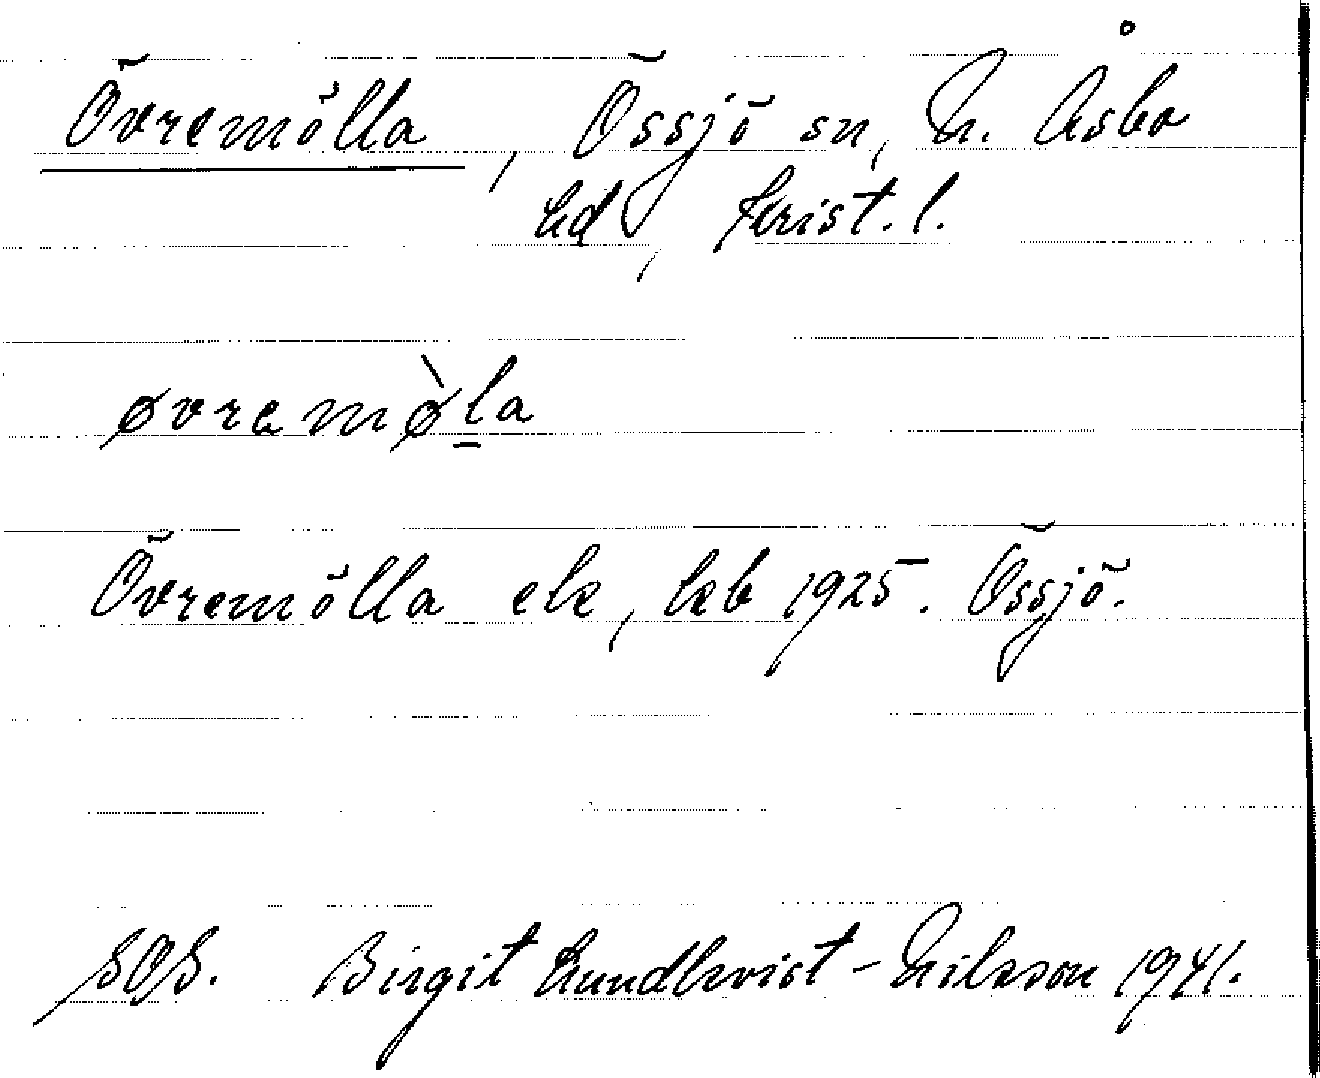 Övremölla, Össjö sn, N. Åsbo
hd, Krist. l.
øvremø̀la
Övremölla ek, kb 1925. Össjö.
SOS. Birgit Lundkvist-Nilsson 1941.